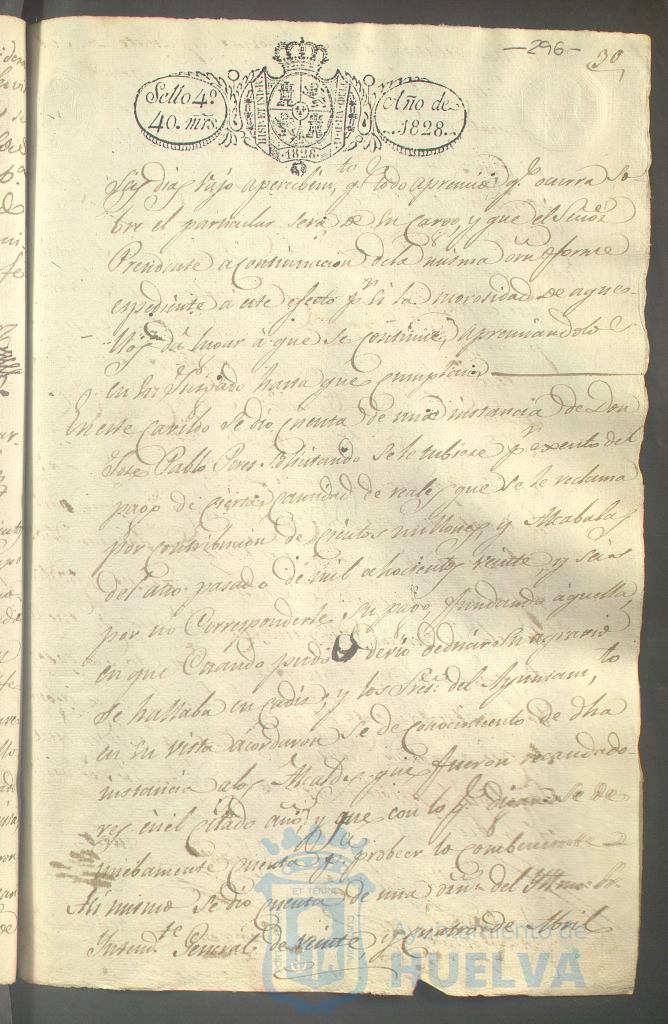 -296-
30
Sello 4º
40. mrs
HISP. ET IND. R
1828
Año de
1828.
Seis dias vajo apercibim.to q.e todo apremio q.e ocurra so
bre el particular será de su cargo, y que el Señor
Presidente a continuacion de la misma orn forme
espediente a este efecto p.r si la morosidad de aque-
llos dá lugar à que se continue, apremiandolos
en su Juzgado hasta que cumplan
En este cavildo se dio cuenta de una instancia de Don
José Pablo Peres solicitando se le tubiese p.r exento del
pago de cierta cantidad de reales que se le reclama
por contribucion de cientos millones y Alcabalas
del año pasado de mil ochocientos veinte y seis
por no corresponderle su pago, fundando aquella,
en que cuando pudo o devio deducir su agravio
se hallaba en cadis; y los Sres. del Ayuntam.to
en su vista acordaron se de conocimiento de dha
instancia a los Alcaldes que fueron recaudado-
res en el citado año, y que con lo q.e digan se de
nuebamente cuenta p.a probeer lo combeniente
Asi mismo se dio cuenta de una orn del Illmo Sr.
Intend.te General de veinte y cuatro de Abril
Ayuntamiento de
HUELVA